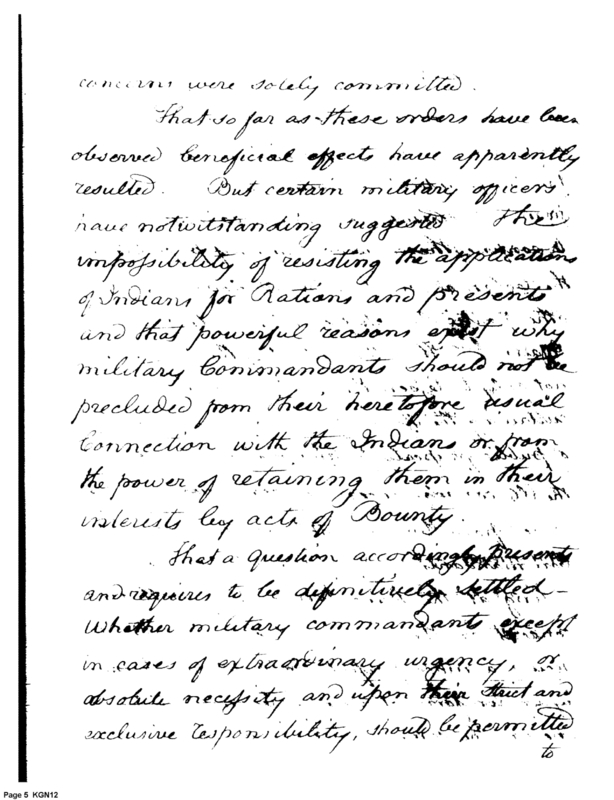 concerns were solely committed.
That so far as these orders have been
observed beneficial effects have apparently
resulted. But certain military officers
have notwitstanding suggested the
impossibility of resisting the applications
of Indians for Rations and presents
and that powerful reasons exist why
military Commandants should not be
precluded from their heretofore usual
Connection with the Indians or from
the power of retaining them in their
interests by acts of Bounty.
That a question accordingly presents
and requires to be definitively settled -
Whether military commandants except
in cases of extraordinary urgency, or
absolute necessity and upon their strict and
exclusive responsibility, should be permitted
to
Page 5 KGN12